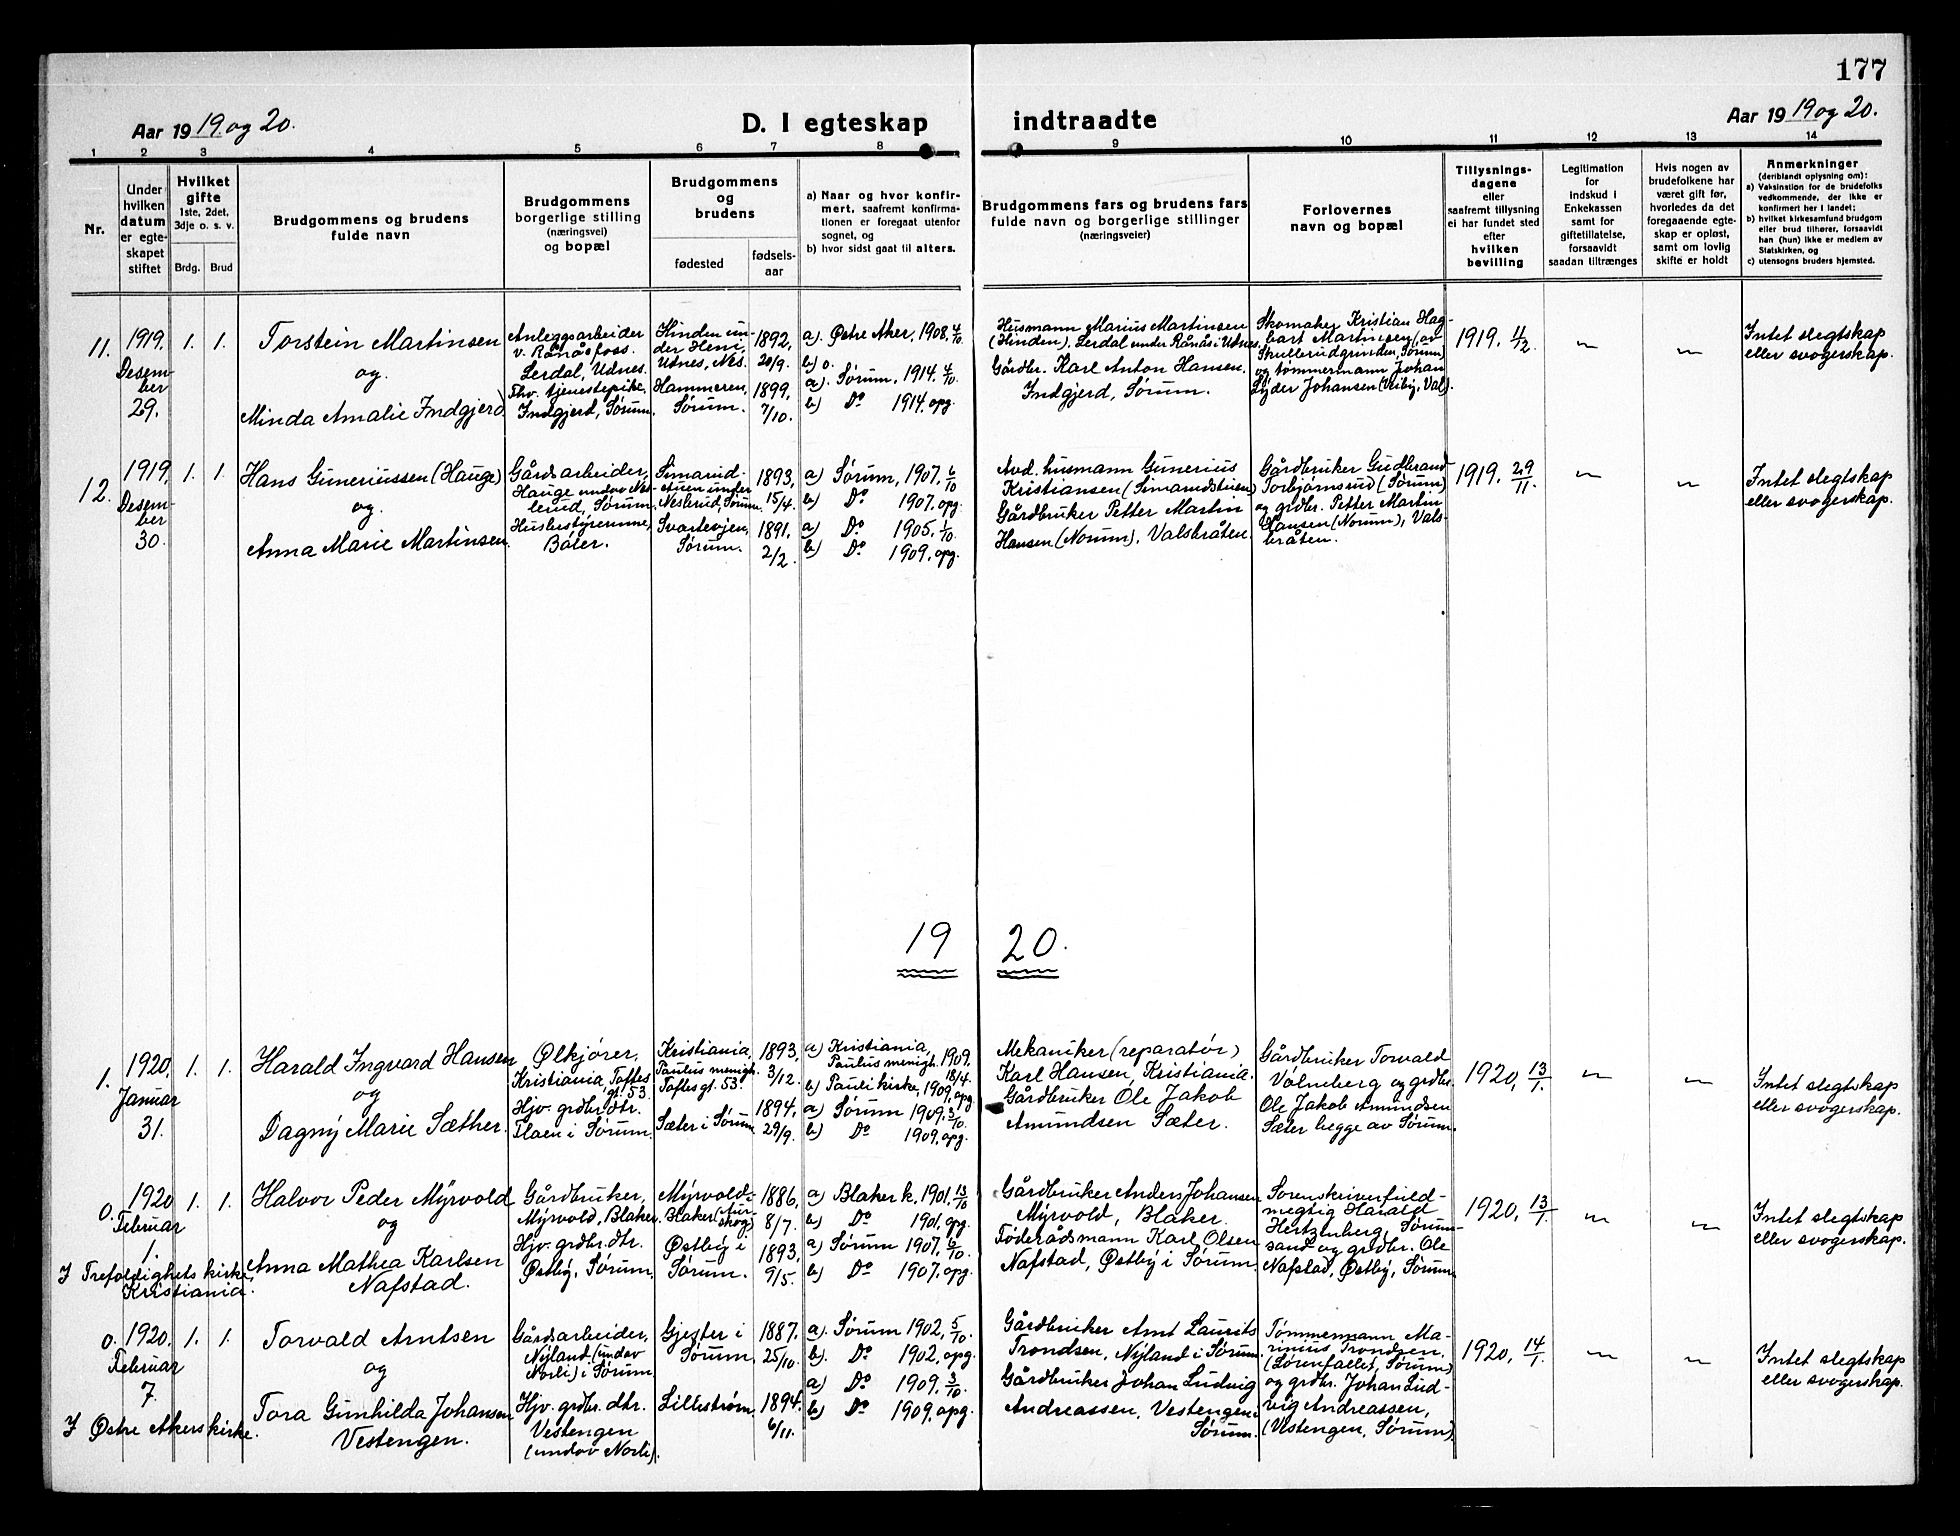 177
Aar 1919 og 20.
D. I egteskap
indtraadte
Aar 1919 og 20.
1 2 3 4 5 6 7 8 9 10 11 12 13 14
Nr.
Under hvilken datum er egteskapet stiftet
Hvilket gifte
1ste, 2det, 3dje o. s. v.
Brdg. Brud
Brudgommens og brudens fulde navn
Brudgommens borgerlige stilling (næringsvei) og bopæl
Brudgommens og brudens
fødested
fødsels-aar
a) Naar og hvor konfirmert, saafremt konfirmationen er foregaat utenfor sognet, og
b) hvor sidst gaat til alters.
Brudgommens fars og brudens fars
fulde navn og borgerlige stillinger
(næringsveier)
Forlovernes
navn og bopæl
Tillysnings-dagene eller saafremt tillysning ei har fundet sted efter hvilken bevilling
Legitimation for indskud i Enkekassen samt for giftetillatelse, forsaavidt saadan tiltrænges
Hvis nogen av brudefolkene har været gift før, hvorledes da det foregaaende egteskap er opløst, samt om lovlig skifte er holdt
Anmerkninger
(deriblandt oplysning om):
a) Vaksination for de brudefolks vedkommende, der ikke er konfirmert her i landet;
b) hvilket kirkesamfund brudgom eller brud tilhører, forsaavidt han (hun) ikke er medlem av Statskirken, og
c) utensogns bruders hjemsted.
11.
1919.
Desem-
ber
29.
1. 1.
Torstein Martinsen
og
Minda Amalie Indgjerd
Anleggsarbeider
v. Rånåsfoss.
Lerdal, Udnes.
Thv. tjenestepike
Indgjerd, Sørum.
Hinden un-
der Heni
Udnes, Nes.
Hammeren,
Sørum.
1892,
20/9.
1899,
7/10.
a) Østre Aker, 1908. 4/10
b) o.
a). Sørum, 1914. 4/10
b) Do 1914. opg.
Husmann Marius Martinsen
(Hinden), Lerdal under Rånås i Udnes.
Gårdbr. Karl Anton Hansen,
Indgjerd, Sørum.
Skomaker Kristian Hag-
bart Martinsen (av
Skullerudgrinden, Sørum)
og tømmermann Johan
Lyder Johansen (Veiby, Val).
1919. 4/2.
Intet slegtskap
eller svogerskap.
12.
1919,
Desem-
ber
30.
1. 1.
Hans Guneriussen (Hauge)
og.
Anna Marie Martinsen.
Gårdsarbeider,
Hauge undav Nes-
lerud, Sørum.
Husbestyrerinne,
Bøler.
Simarud-
stuen under
Neslerud, Sørum.
Svartevjen,
Sørum.
1893,
15/4.
1891,
2/2.
a) Sørum, 1907. 6/10
b) Do 1907. opg.
a) Do 1905. 1/10
b) Do 1909. opg.
Avd. husmann Gunerius
Kristiansen (Simarudstuen)
Gårdbruker Petter Martin
Hansen (Norum), Valsbråten.
Gårdbruker Gudbrand
Torbjørnsrud (Sørum)
og grdbr. Petter Martin
Hansen (Norum), Vals-
bråten.
1919. 29/11.
Intet slegtskap
eller svogerskap.
19 20.
1.
1920,
Januar
31.
1. 1.
Harald Ingvard Hansen
og
Dagny Marie Sæther.
Ølkjører,
Kristiania, Toftes
gt. 53.
Hjv. grdbr. dtr.
Flaen i Sørum.
Kristiania,
Paulus menigh.
Toftes gt. 53.
Sæter i Sørum
1893,
3/12.
1894,
29/9.
a) Kristiania,
Paulus menigh. 1909.
18/4.
b) Pauli kirke, 1909, opg.
a) Sørum 1909. 3/10
b) Do 1909. opg.
Mekaniker (reparatør)
Karl Hansen, Kristiania.
Gårdbruker Ole Jakob
Amundsen Sæter.
Gårdbruker Torvald
Vølneberg og grdbr.
Ole Jakob Amundsen
Sæter begge av Sørum.
1920, 13/1.
Intet slegtskap
eller svogerskap.
0.
1920
Februar
1.
I Trefoldighets kirke,
Kristiania.
1. 1.
Halvor Peder Myrvold
og
Anna Mathea Karlsen
Nafstad.
Gårdbruker,
Myrvold, Blaker.
Hjv. grdbr. dtr.
Østby, Sørum.
Myrvold i
Blaker (Aur-
skog)
Østby i
Sørum.
1886,
8/7.
1893,
9/5.
a) Blaker k. 1901. 13/10
b) Do 1901, opg.
a) Sørum 1907. 6/10
b) Do 1907. opg.
Gårdbruker Anders Johansen
Myrvold, Blaker.
Føderådsmann Karl Olsen
Nafstad, Østby i Sørum.
Sorenskriverfuld-
megtig Harald
Hertzenberg, Sørum-
sand og grdbr. Ole
Nafstad, Østby, Sørum
1920, 13/1.
Intet slegtskap
eller svogerskap.
0.
1920.
Februar
7.
I Østre Akers kirke.
1. 1.
Torvald Arntsen
og
Tora Gunhilda Johansen
Vestengen.
Gårdsarbeider,
Nyland (undav
Norli) i Sørum
Hjv. grdbr. dtr.
Vestengen
(undav Norli).
Gjester i
Sørum,
Lillestrøm,
1887.
25/10.
1894.
6/11.
a). Sørum 1902, 5/10.
b). Do 1902, opg.
a) Do 1909. 3/10
b) Do 1909. opg.
Gårdbruker Arnt Laurits
Trondsen, Nyland i Sørum.
Gårdbruker Johan Ludvig
Andreassen, Vestengen i
Sørum.
Tømmermann Ma-
rinius Trondsen,
(Sørenfallet, Sørum)
og grdbr. Johan Lud-
vig Andreassen,
(Vestengen, Sørum).
1920, 14/1.
Intet slegtskap
eller svogerskap.